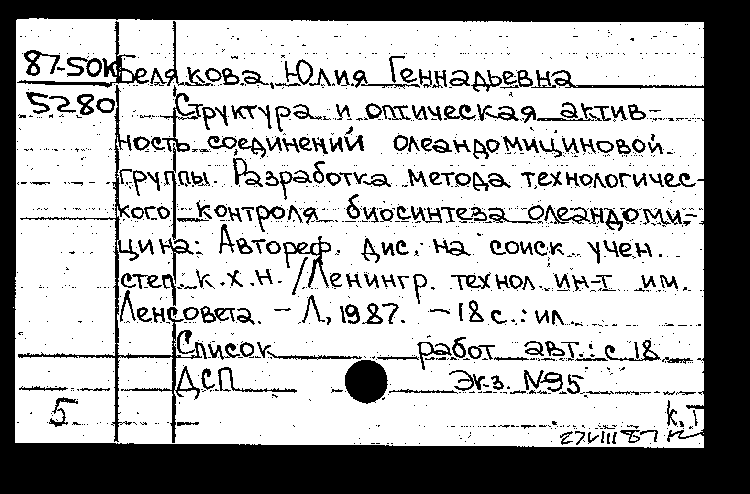 87-50К Белякова, Юлия Геннадьевна
5280 Структура и оптическая актив-
ность соединений олеандомициновой
группы. Разработка метода технологичес-
кого контроля биосинтеза олеандоми-
цина: Автореф. дис. на соиск. учен.
степ. к.х.н. /Ленингр. технол. ин-т им.
Ленсовета. - Л, 1987. - 18 с.: ил.
Список работ авт.: с 18
ДСП Экз. №95
5 К.Т
27 VIII 87